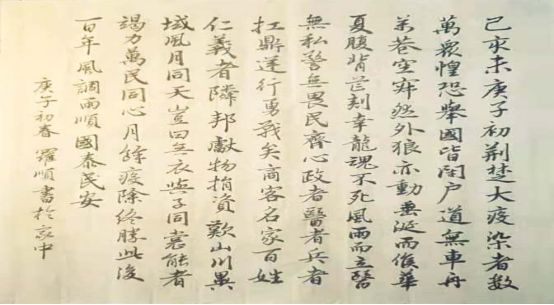 己亥末庚子初荆楚大疫染者數
萬眾惶恐舉國皆閉户道無車舟
萬巷空寂然外狼亦動垂涎而候華
夏腹背芒刺幸龍魂不死風雨而立醫
無私警無畏民齊心政者醫者兵者
扛鼎逆行勇戰矣商客名家百姓
仁義者隣邦獻物捐資歎山川異
域風月同天豈曰無衣與子同裳能者
竭力萬民同心月餘疫除終勝此後
百年風調雨順國泰民安
庚子初春 羅順書於家中